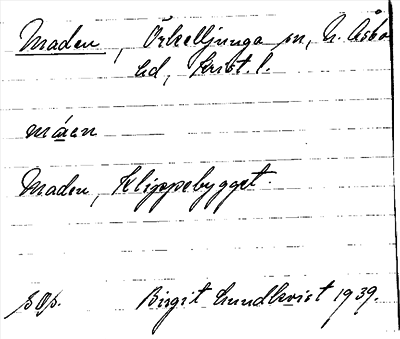 Maden, Örkelljunga sn, N. Åsbo
hd, Krist. l.
måen
Maden, Klippebygget.
sOp.
Birgit Lundkvist 1939.